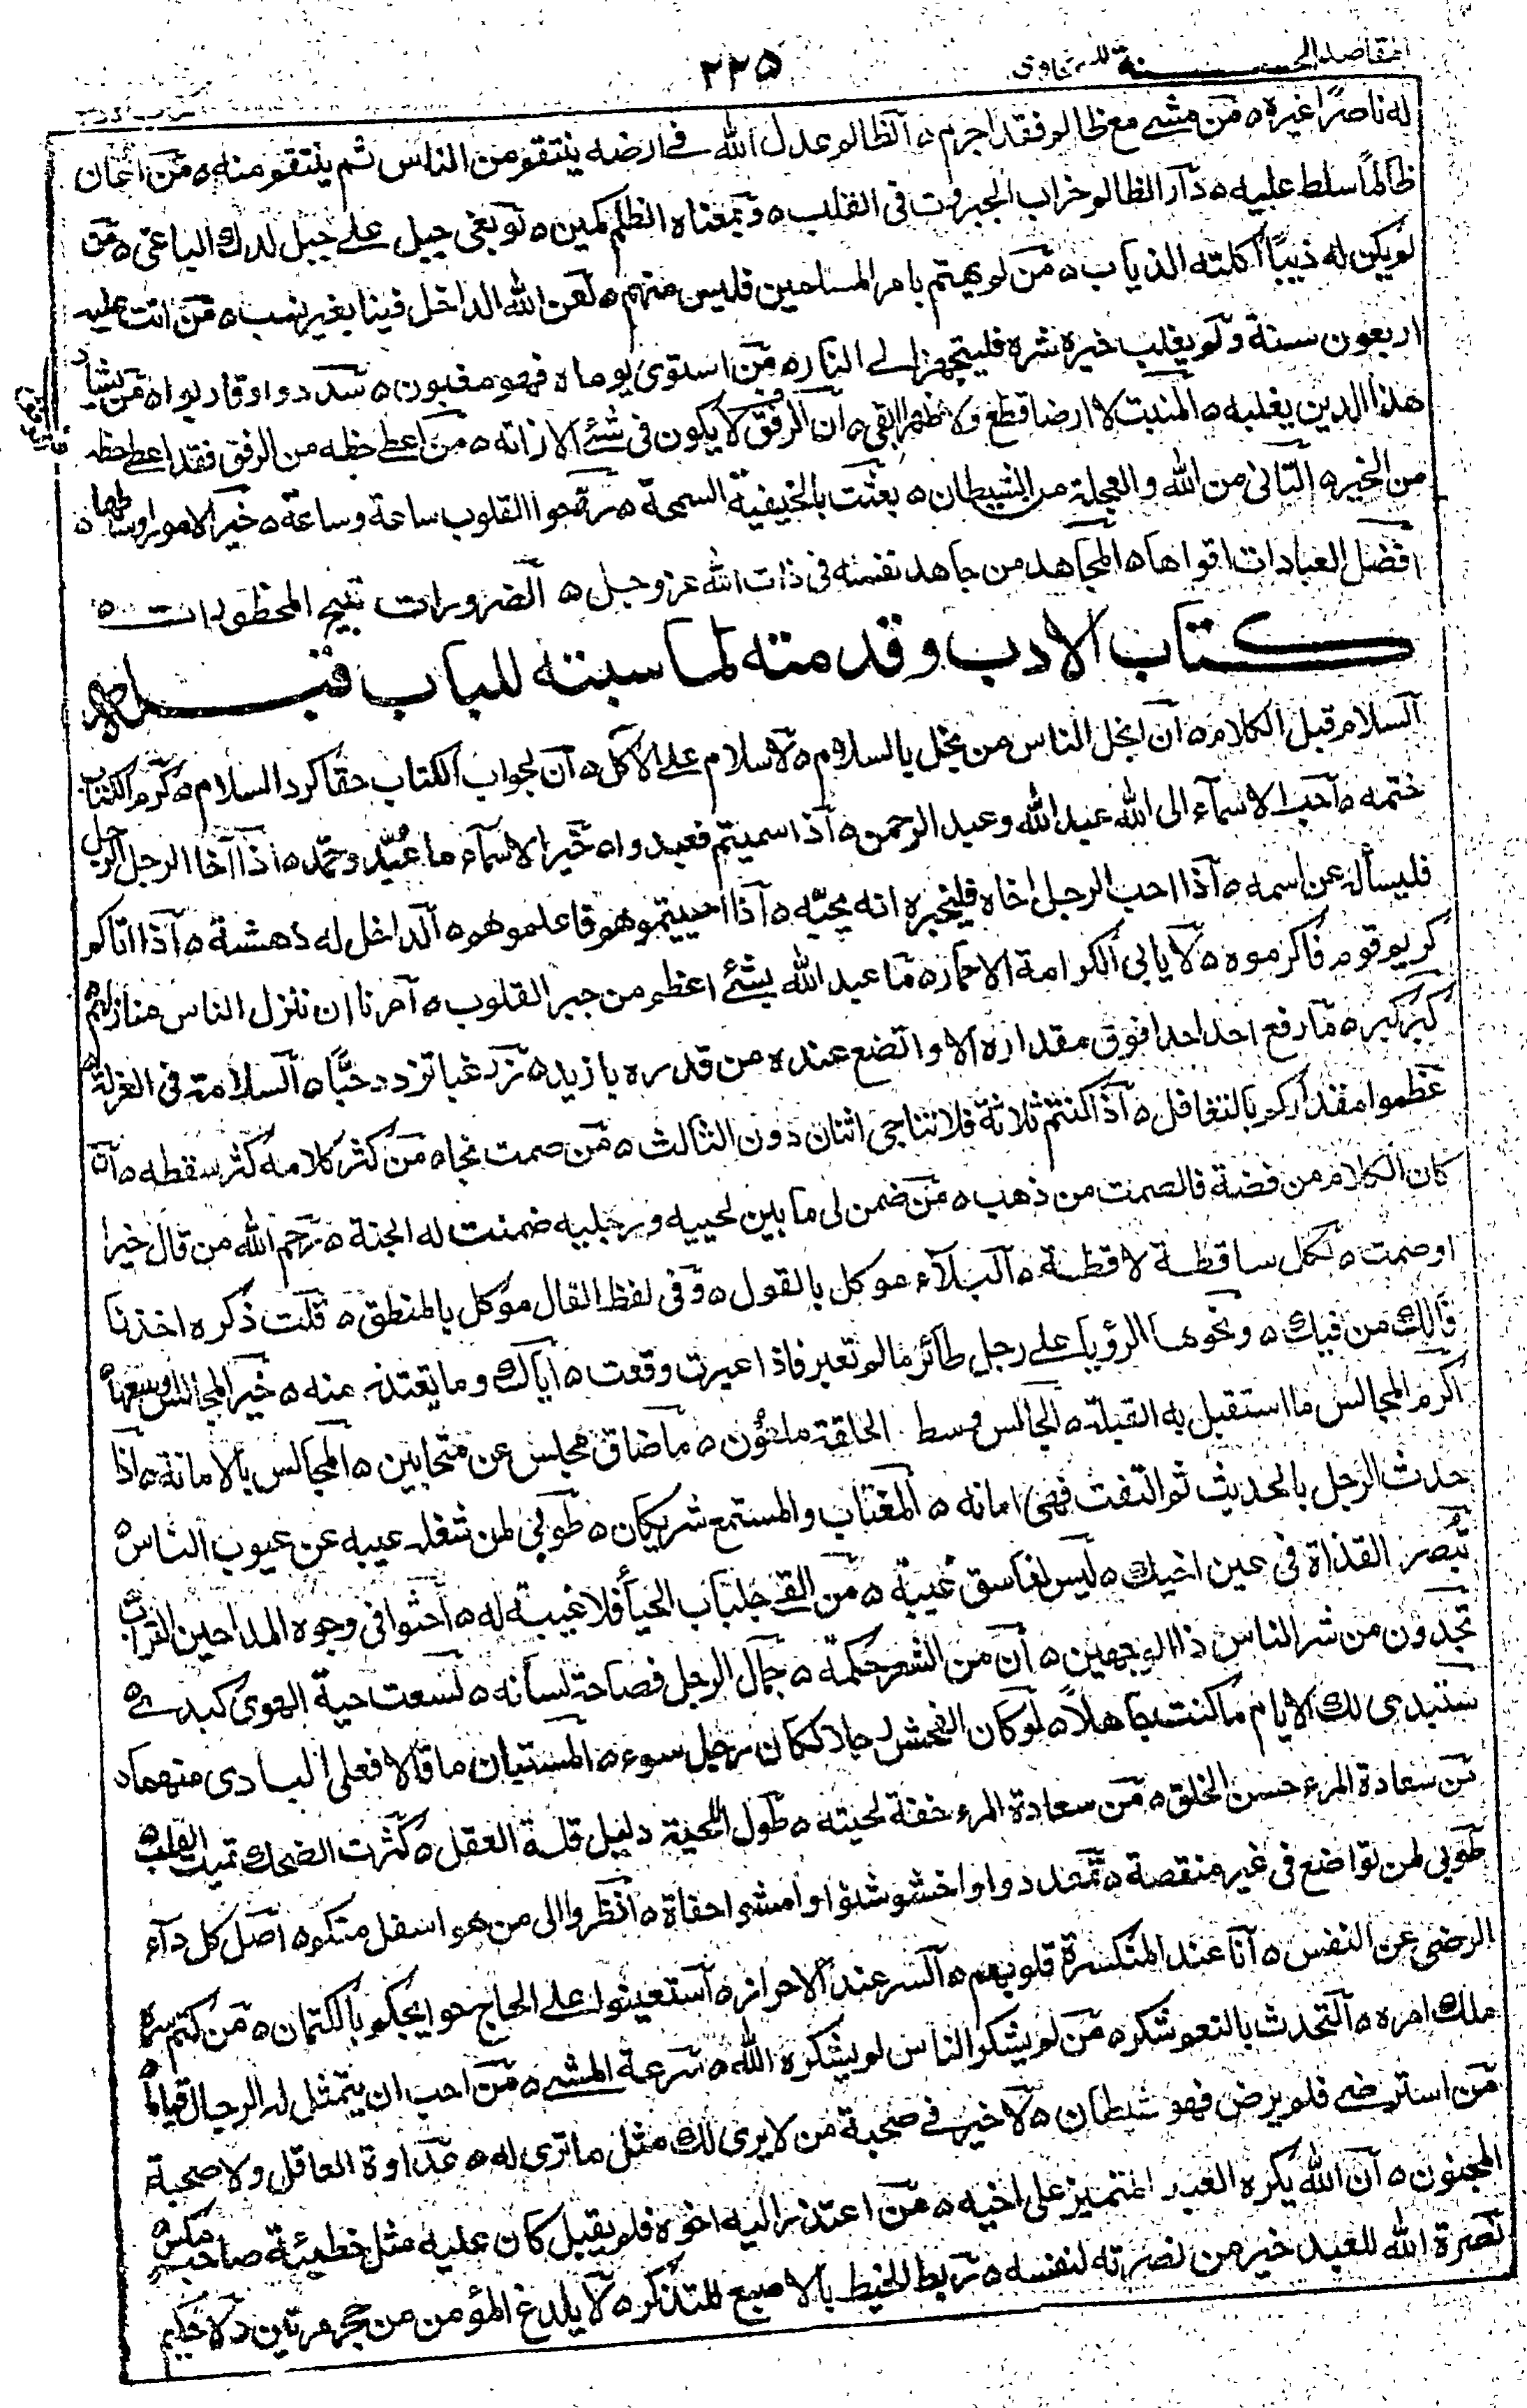 المقاصد الحسنة للسخاوى
٢٢٥
له ناصرا غيره ه من مشى مع ظالم فقد اجرم ه الظالم عدل الله فى ارضه ينتقم من الناس ثم ينتقم منه ه من اعان
ظالماً سلط عليه ه دار الظالم خراب الجبروت فى القلب ه وبمعناه الظلم كمين ه لو بغى جبل على جبل لدك الباغى ه من
لم يكن له ذيبًا أكلته الذياب ه من لم يهتم بامر المسلمين فليس منهم ه لعن الله الداخل فينا بغير نسب ه من اتت عليه
اربعون سنة ولم يغلب خيره شره فليتجهز الى النار ه من استوى يوماه فهو مغبون ه سددوا وقاربوا ه من يشاد
هذا الدين يغلبه ه المنبت لا ارضا قطع ولا ظهرا ابقى ه ان الرفق لا يكون فى شئ الا زانه ه من اعطى حظه من الرفق فقد اعطى حظه
من الخير ه التانى من الله والعجلة من الشيطان ه بعثت بالحنيفية السمحة ه روحوا القلوب ساعة وساعة ه خير الامور اوسطها ه
افضل العبادات اقواها ه المجاهد من جاهد نفسه فى ذات الله عز وجل ه الضرورات تبيح المحظورات ه
كتاب الادب وقدمته لمناسبته للباب قبله
السلام قبل الكلام ه ان ابخل الناس من بخل بالسلام ه لا سلام على الاكل ه ان لجواب الكتاب حقا كرد السلام ه كرم الكتاب
ختمه ه احب الاسمآء الى الله عبد الله وعبد الرحمن ه اذا سميتم فعبدوا ه خير الاسمآء ما عبّد وحمّد ه اذا آخا الرجل الرجل
فليسأل عن اسمه ه اذا احب الرجل اخاه فليخبره انه يحبّه ه اذا احببتموهم فاعلموهم ه الداخل له دهشة ه اذا اتاكم
كريم قوم فاكرموه ه لا يابى الكرامة الا حمار ه ما عبد الله بشئ اعظم من جبر القلوب ه امرنا ان ننزل الناس منازلهم ه
كبر كبر ه ما رفع احد احدا فوق مقداره الا واتضع عنده من قدره بازيد ه زر غبا تزدد حبًّا ه السلامة فى العزلة ه
عظموا مقداركم بالتغافل ه اذا كنتم ثلاثة فلا يتناجى اثنان دون الثالث ه من صمت نجا ه من كثر كلامه كثر سقطه ه ان
كان الكلام من فضة فالصمت من ذهب ه من ضمن لى ما بين لحييه ورجليه ضمنت له الجنة ه رحم الله من قال خيرا
او صمت ه لكل ساقطة لاقطة ه البلآء موكل بالقول ه وفى لفظ الفال موكل بالمنطق ه قلت ذكره اخذنا
فالك من فيك ه ونحوها الرؤيا على رجل طائر ما لم تعبر فاذا عبرت وقعت ه اياك وما يعتذر منه ه خير المجالس اوسعها ه
اكرم المجالس ما استقبل به القبلة ه الجالس وسط الحلقة ملعون ه ما ضاق مجلس عن متحابين ه المجالس بالامانة ه اذا
حدث الرجل بالحديث ثم التفت فهى امانه ه المغتاب والمستمع شريكان ه طوبى لمن شغله عيبه عن عيوب الناس ه
تبصر القذاة فى عين اخيك ه ليس لفاسق غيبة ه من القى جلباب الحيآء فلا غيبة له ه احثوا فى وجوه المداحين التراب ه
تجدون من شر الناس ذا الوجهين ه ان من الشعر حكمة ه جمال الرجل فصاحة لسانه ه لسعت حية الهوى كبدى ه
ستبدى لك الايام ما كنت جاهلاً ه لو كان الفحش رجلا لكان رجل سوء ه المستبان ما قالا فعلى البادى منهما ه
من سعادة المرء حسن الخلق ه من سعادة المرء خفة لحيته ه طول اللحية دليل قلة العقل ه كثرت الضحك تميت القلب ه
طوبى لمن تواضع فى غير منقصة ه تمعددوا واخشوشنوا وامشوا حفاة ه انظروا الى من هو اسفل منكم ه اصل كل دآء
الرضى عن النفس ه انا عند المنكسرة قلوبهم ه السر عند الاحرار ه استعينوا على انجاح حوايجكم بالكتمان ه من كتم سره
ملك امره ه التحدث بالنعم شكر ه من لم يشكر الناس لم يشكر الله ه سرعة المشى ه من احب ان يتمثل له الرجال قياما ه
من استرضى فلم يرض فهو شيطان ه لا خير فى صحبة من لا يرى لك مثل ما ترى له ه عداوة العاقل ولا صحبة
المجنون ه ان الله يكره العبد المتميز على اخيه ه من اعتذر اليه اخوه فلم يقبل كان عليه مثل خطيئة صاحب مكس ه
نصرة الله للعبد خير من نصرته لنفسه ه ربط الخيط بالاصبع للتذكر ه لا يلدغ المؤمن من جحر مرتين ه لا حكيم